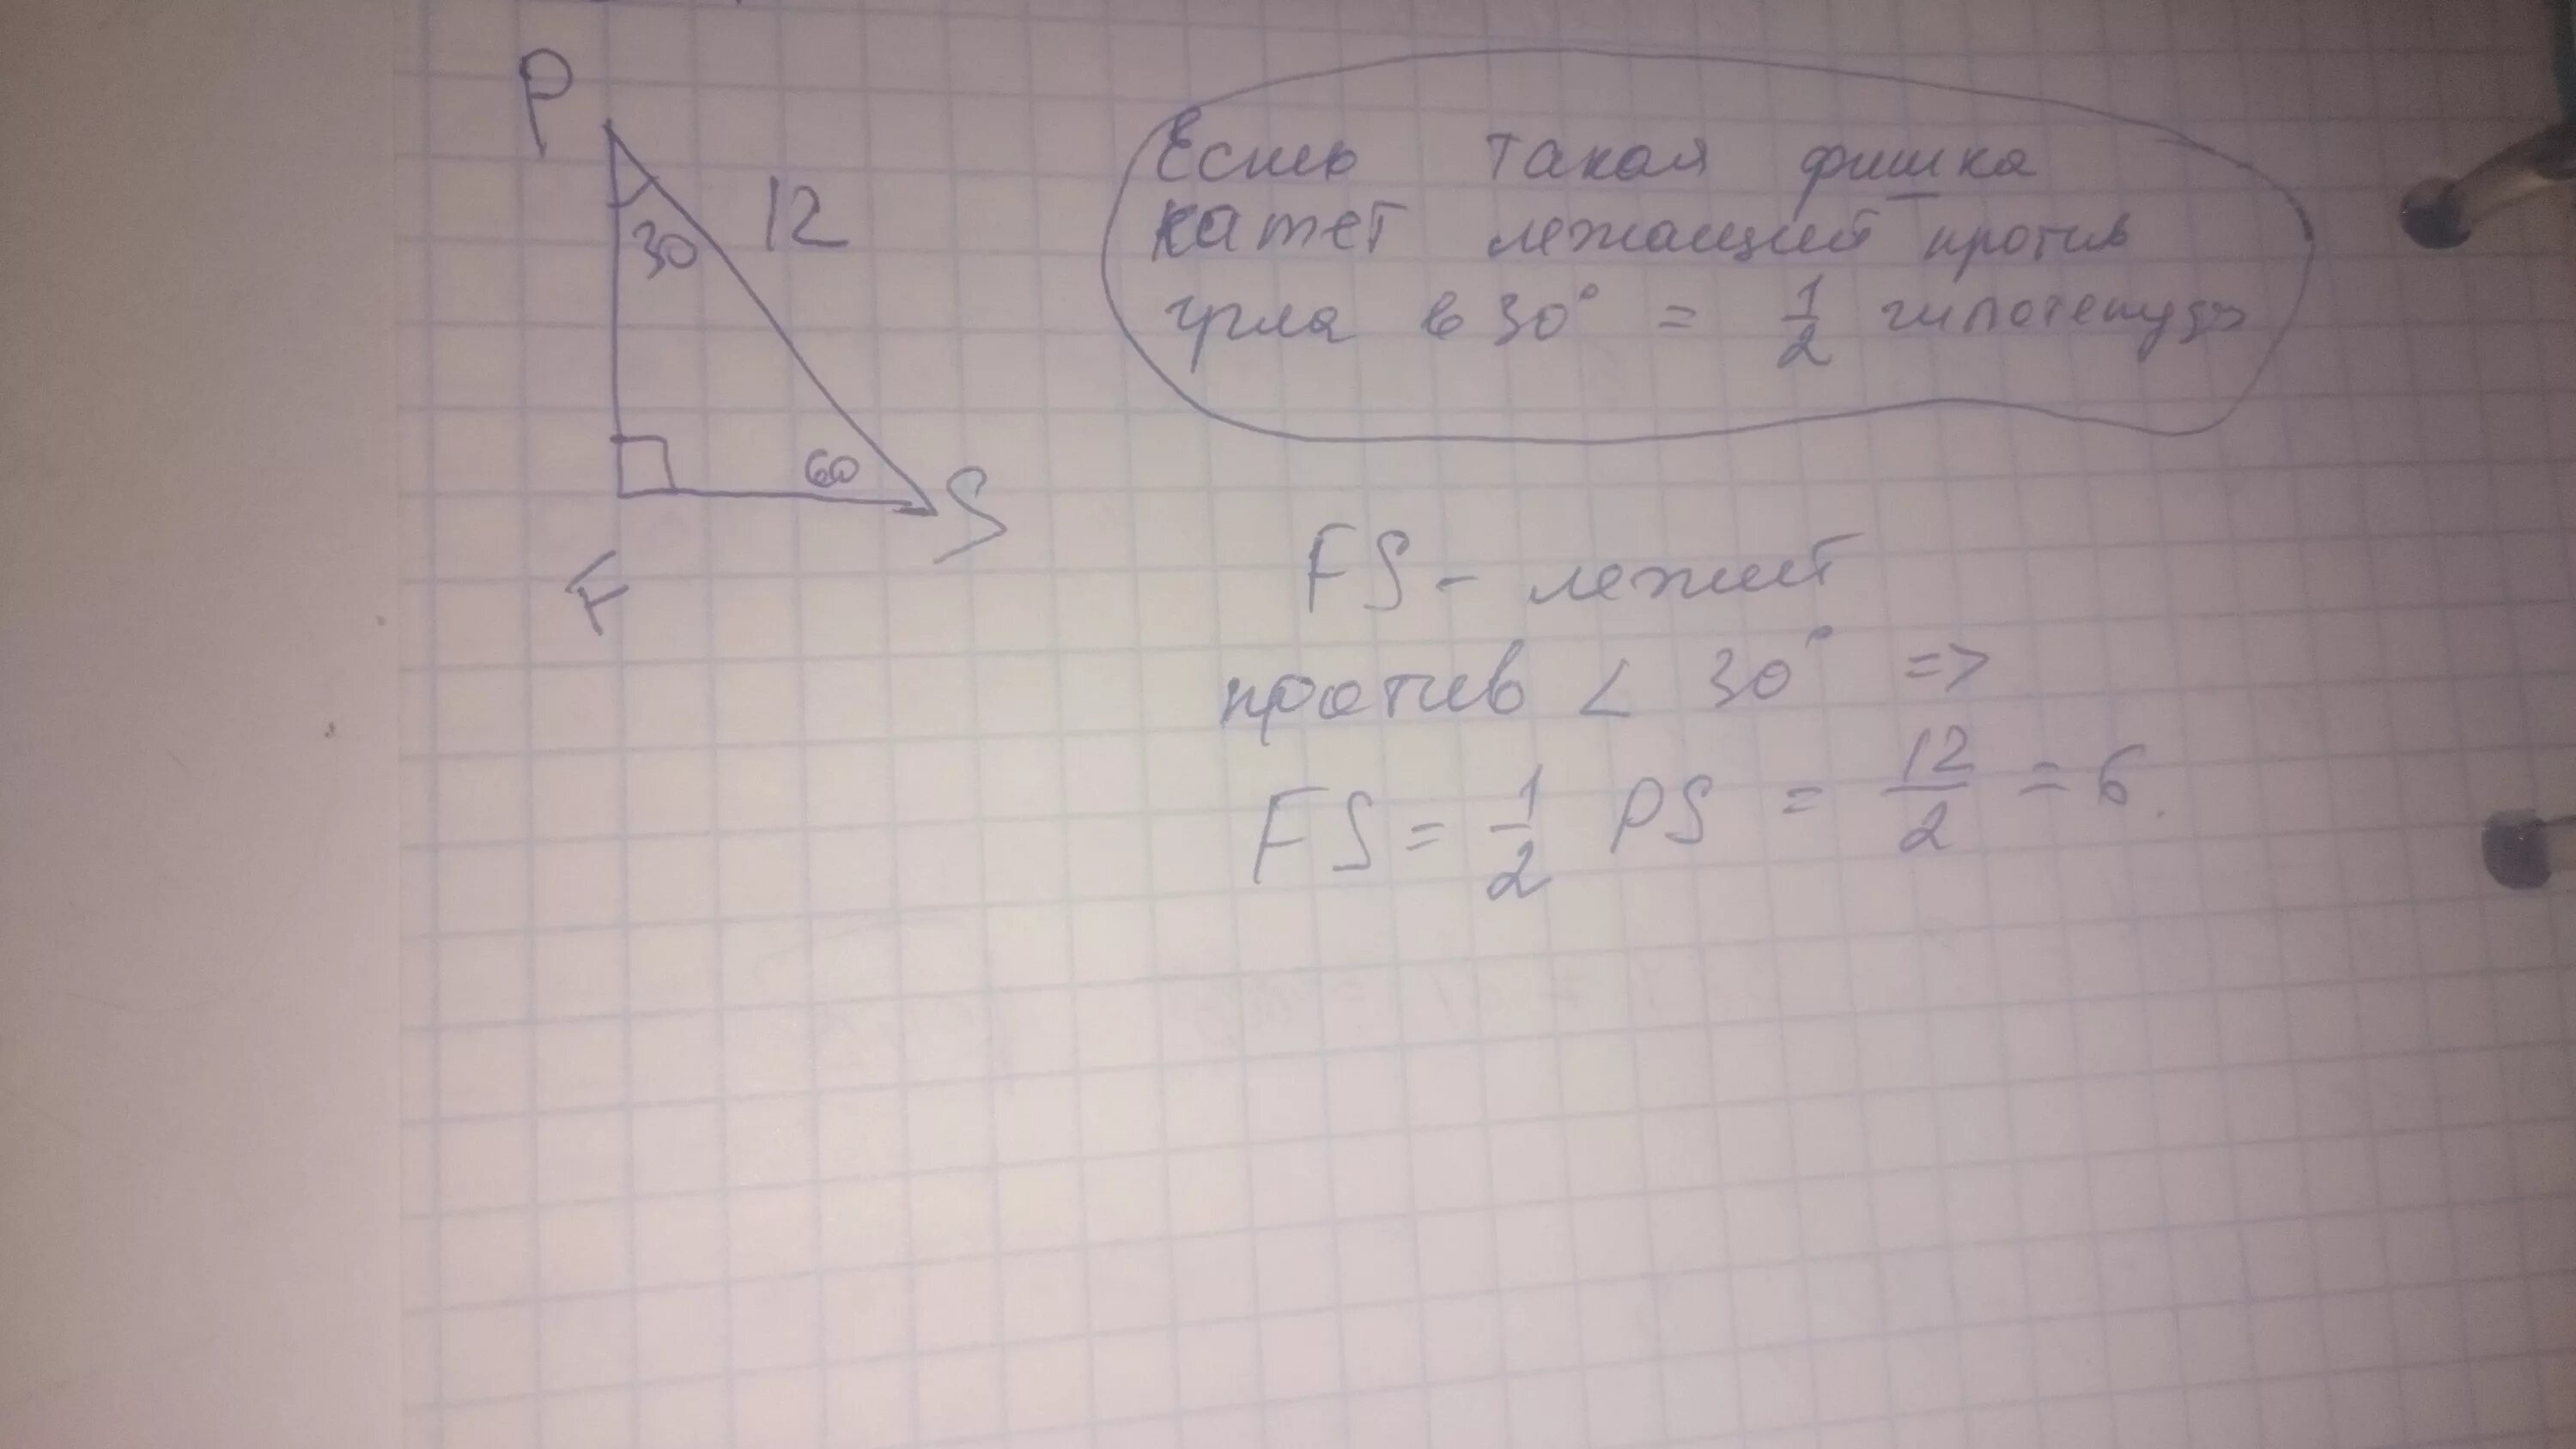 P
30
12
60
S
F
Есть такая фишка
катет лежащий против
угла в 30° = 1/2 гипотенузы
FS - лежит
против < 30° =>
FS = 1/2 PS = 12/2 = 6.